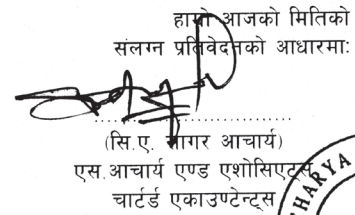 हाम्रो आजको मितिको
संलग्न प्रतिवेदनको आधारमा:
(सि.ए. सागर आचार्य)
एस.आचार्य एण्ड एशोसिएट्स
चार्टर्ड एकाउण्टेन्ट्स